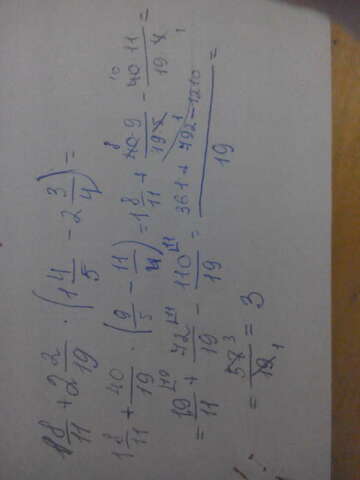 1 8/11 + 2 2/19 · (1 4/5 - 2 3/4) =
1 8/11 + 40/19 · (9/5 - 11/4) = 1 8/11 + 40·9/19·5 - 40·11/19·4 =
= 19/11 + 72/19 - 110/19 = 361 + 792 - 1210 / 19 =
= 57/19 = 3